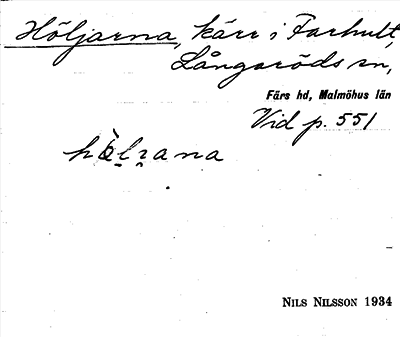 Höljarna, kärr i Farhult,
Långaröds sn,
Färs hd, Malmöhus län
Vid p. 551
NILS NILSSON 1934